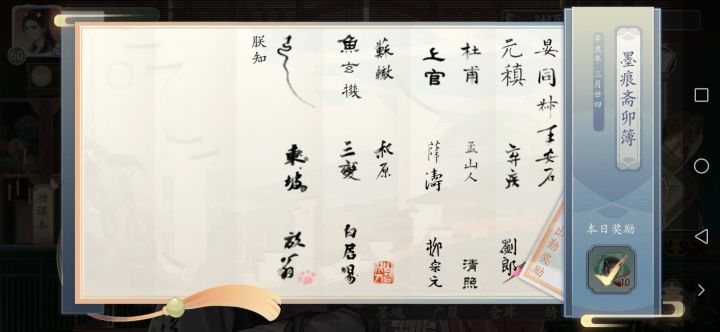 墨痕斋卯簿
辛丑年 三月廿四
本日奖励
10
出勤奖励
晏同叔
王安石
元稹
弃疾
刘郎
杜甫
孟山人
清照
上官
薛濤
柳宗元
蘇轍
叔原
魚玄機
三變
白居易
東坡
放翁
朕知
60
功课本
墨魂
广厦
仓库